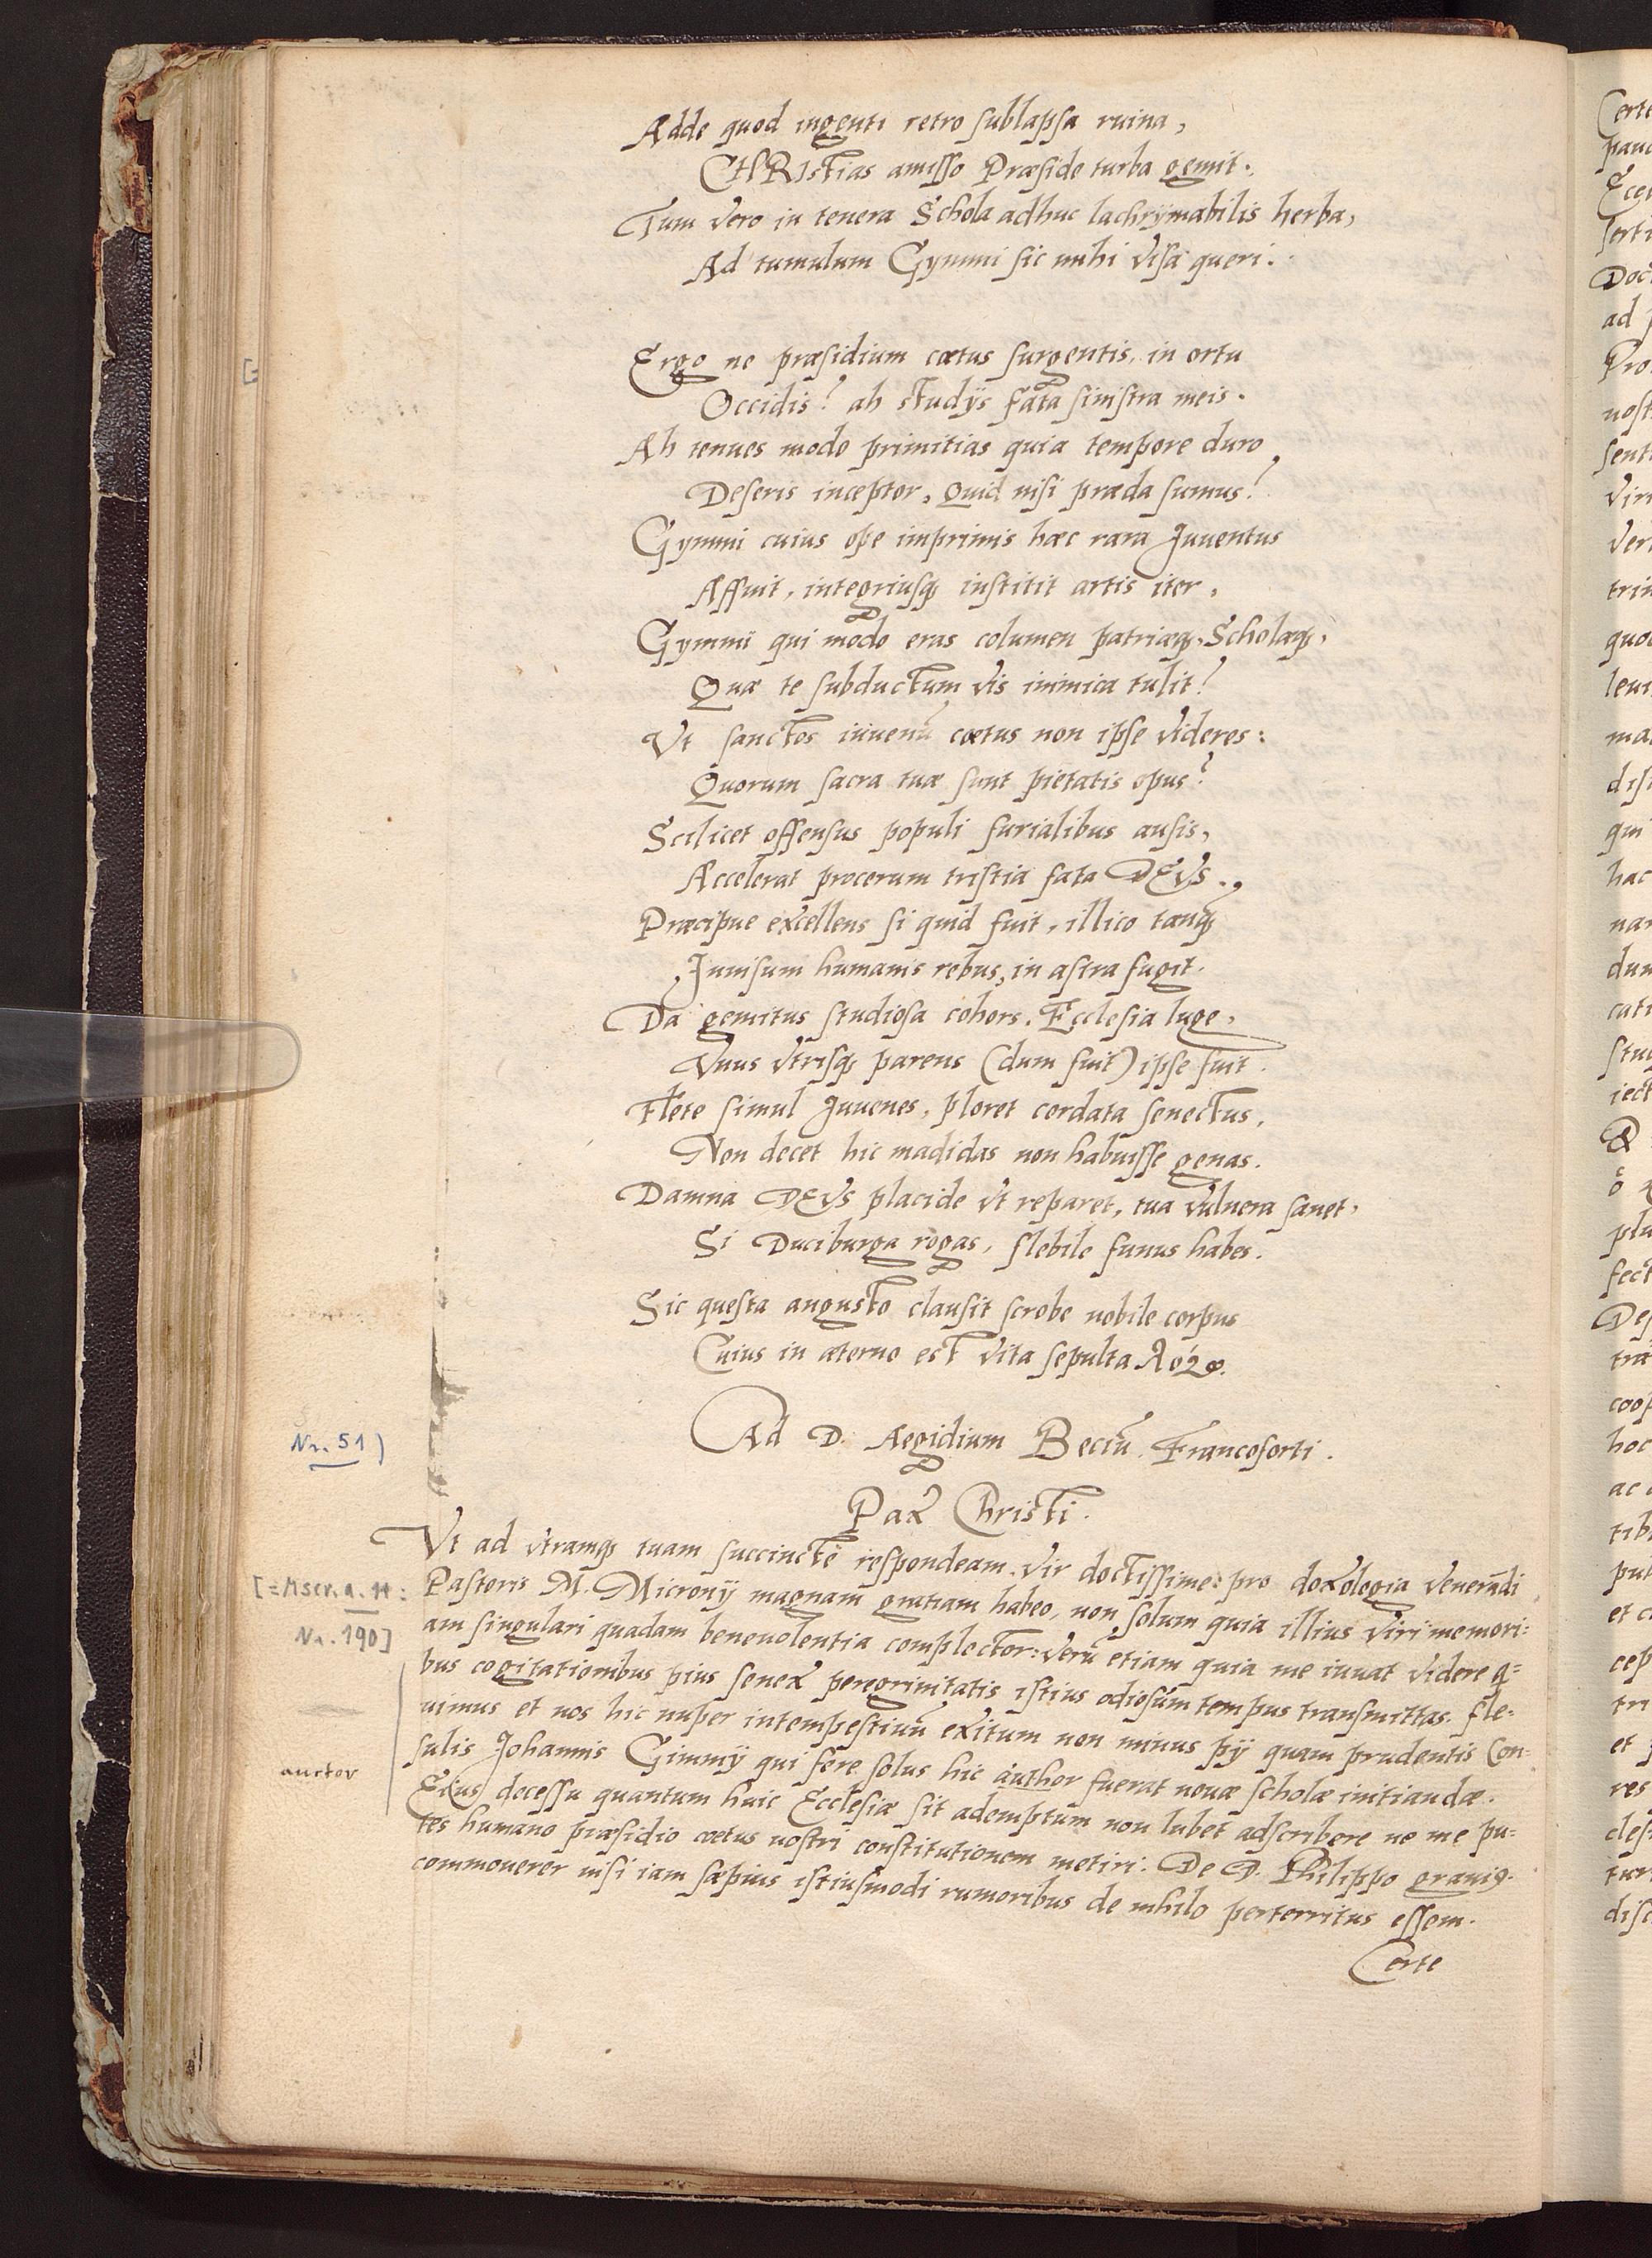 Adde quod ingenti retro sublapsa ruina,
CHRIstias amisso Præside turba gemit.
Tum vero in tenera Schola adhuc lachrÿmabilis herba,
Ad tumulum Gymni sic mihi visa queri.
Ergo ne præsidium cœtus surgentis, in ortu
Occidis? ah studijs fata sinistra meis.
Ah tenues modo primitias quia tempore duro
Deseris inceptor, Quid nisi præda sumus?
Gymni cuius ope imprimis hæc rara Juuentus
Affuit, integriusq3 institit artis iter,
Gymmi qui modo eras columen patriæq3, Scholæq3,
Quæ te subductum vis inimica tulit?
Vt sanctos iuuenũ cœtus non ipse videres:
Quorum sacra tuæ sunt pietatis opus?
Scilicet offensus populi furialibus ausis,
Accelerat procerum tristia fata DEVS.,
Præcipue excellens si quid fuit, illico tanq3
Inuisum humanis rebus, in astra fugit.
Da gemitus studiosa cohors, Ecclesia luge,
Vnus vtrisq3 parens (dum fuit) ipse fuit.
Flete simul Juuenes, ploret cordata senectus,
Non decet hic madidas non habuisse genas.
Damna DEVS placide vt reparet, tua vulnera sanet,
Si Duciburga rogas, flebile funus habes.
Sic questa angusto clausit scrobe nobile corpus
Cuius in æterno est vita sepulta λόγῳ.
Nr. 51)
Ad D. Aegidium Beciũ Francoforti.
Pax Christi.
Vt ad vtramq3 tuam succinctè respondeam, vir doctissime: pro doxologia venerãdi
[= Mscr. a. 11:
Nr. 190]
Pastoris M. Micronij magnam gratiam habeo, non solum quia illius viri memori:
am singulari quadam beneuolentia complector: verũ etiam quia me iuuat videre q=
bus cogitationibus pius senex peregrinitatis istius odiosum tempus transmittas. Fle=
uimus et nos hic nuper intempestiuũ exitum non minus pij quam prudentis Con=
sulis Johannis Gimmij qui fere solus hic author fuerat nouæ scholæ initiandæ.
auctor
Eius decessu quantum huic Ecclesiæ sit ademptum non lubet adscribere ne me pu=
tes humano præsidio cœtus nostri constitutionem metiri. De D. Philippo grauig.
commouerer nisi iam sæpius istiusmodi rumoribus de nihilo perterritus essem.
Certe